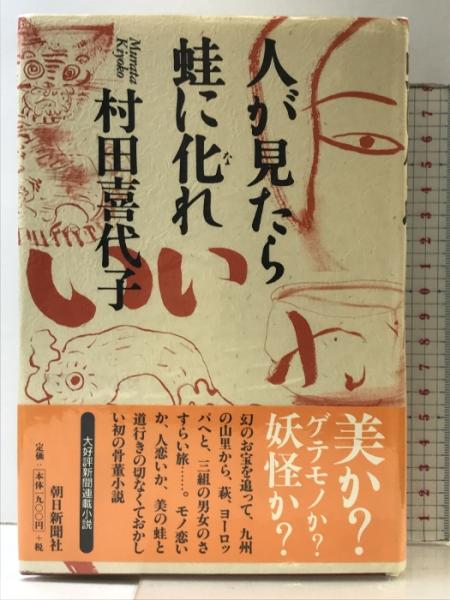 人が見たら
蛙に化れ
な
Murata
Kiyoko
村田喜代子
いい
美か?
ゲテモノか?
妖怪か?
幻のお宝を追って、九州
の山里から、萩、ヨーロッ
パへと、三組の男女のさ
すらい旅……。モノ恋い
か、人恋いか、美の蛙と
道行きの切なくておかし
い初の骨董小説
大好評新聞連載小説
定価:本体一九〇〇円+税
朝日新聞社